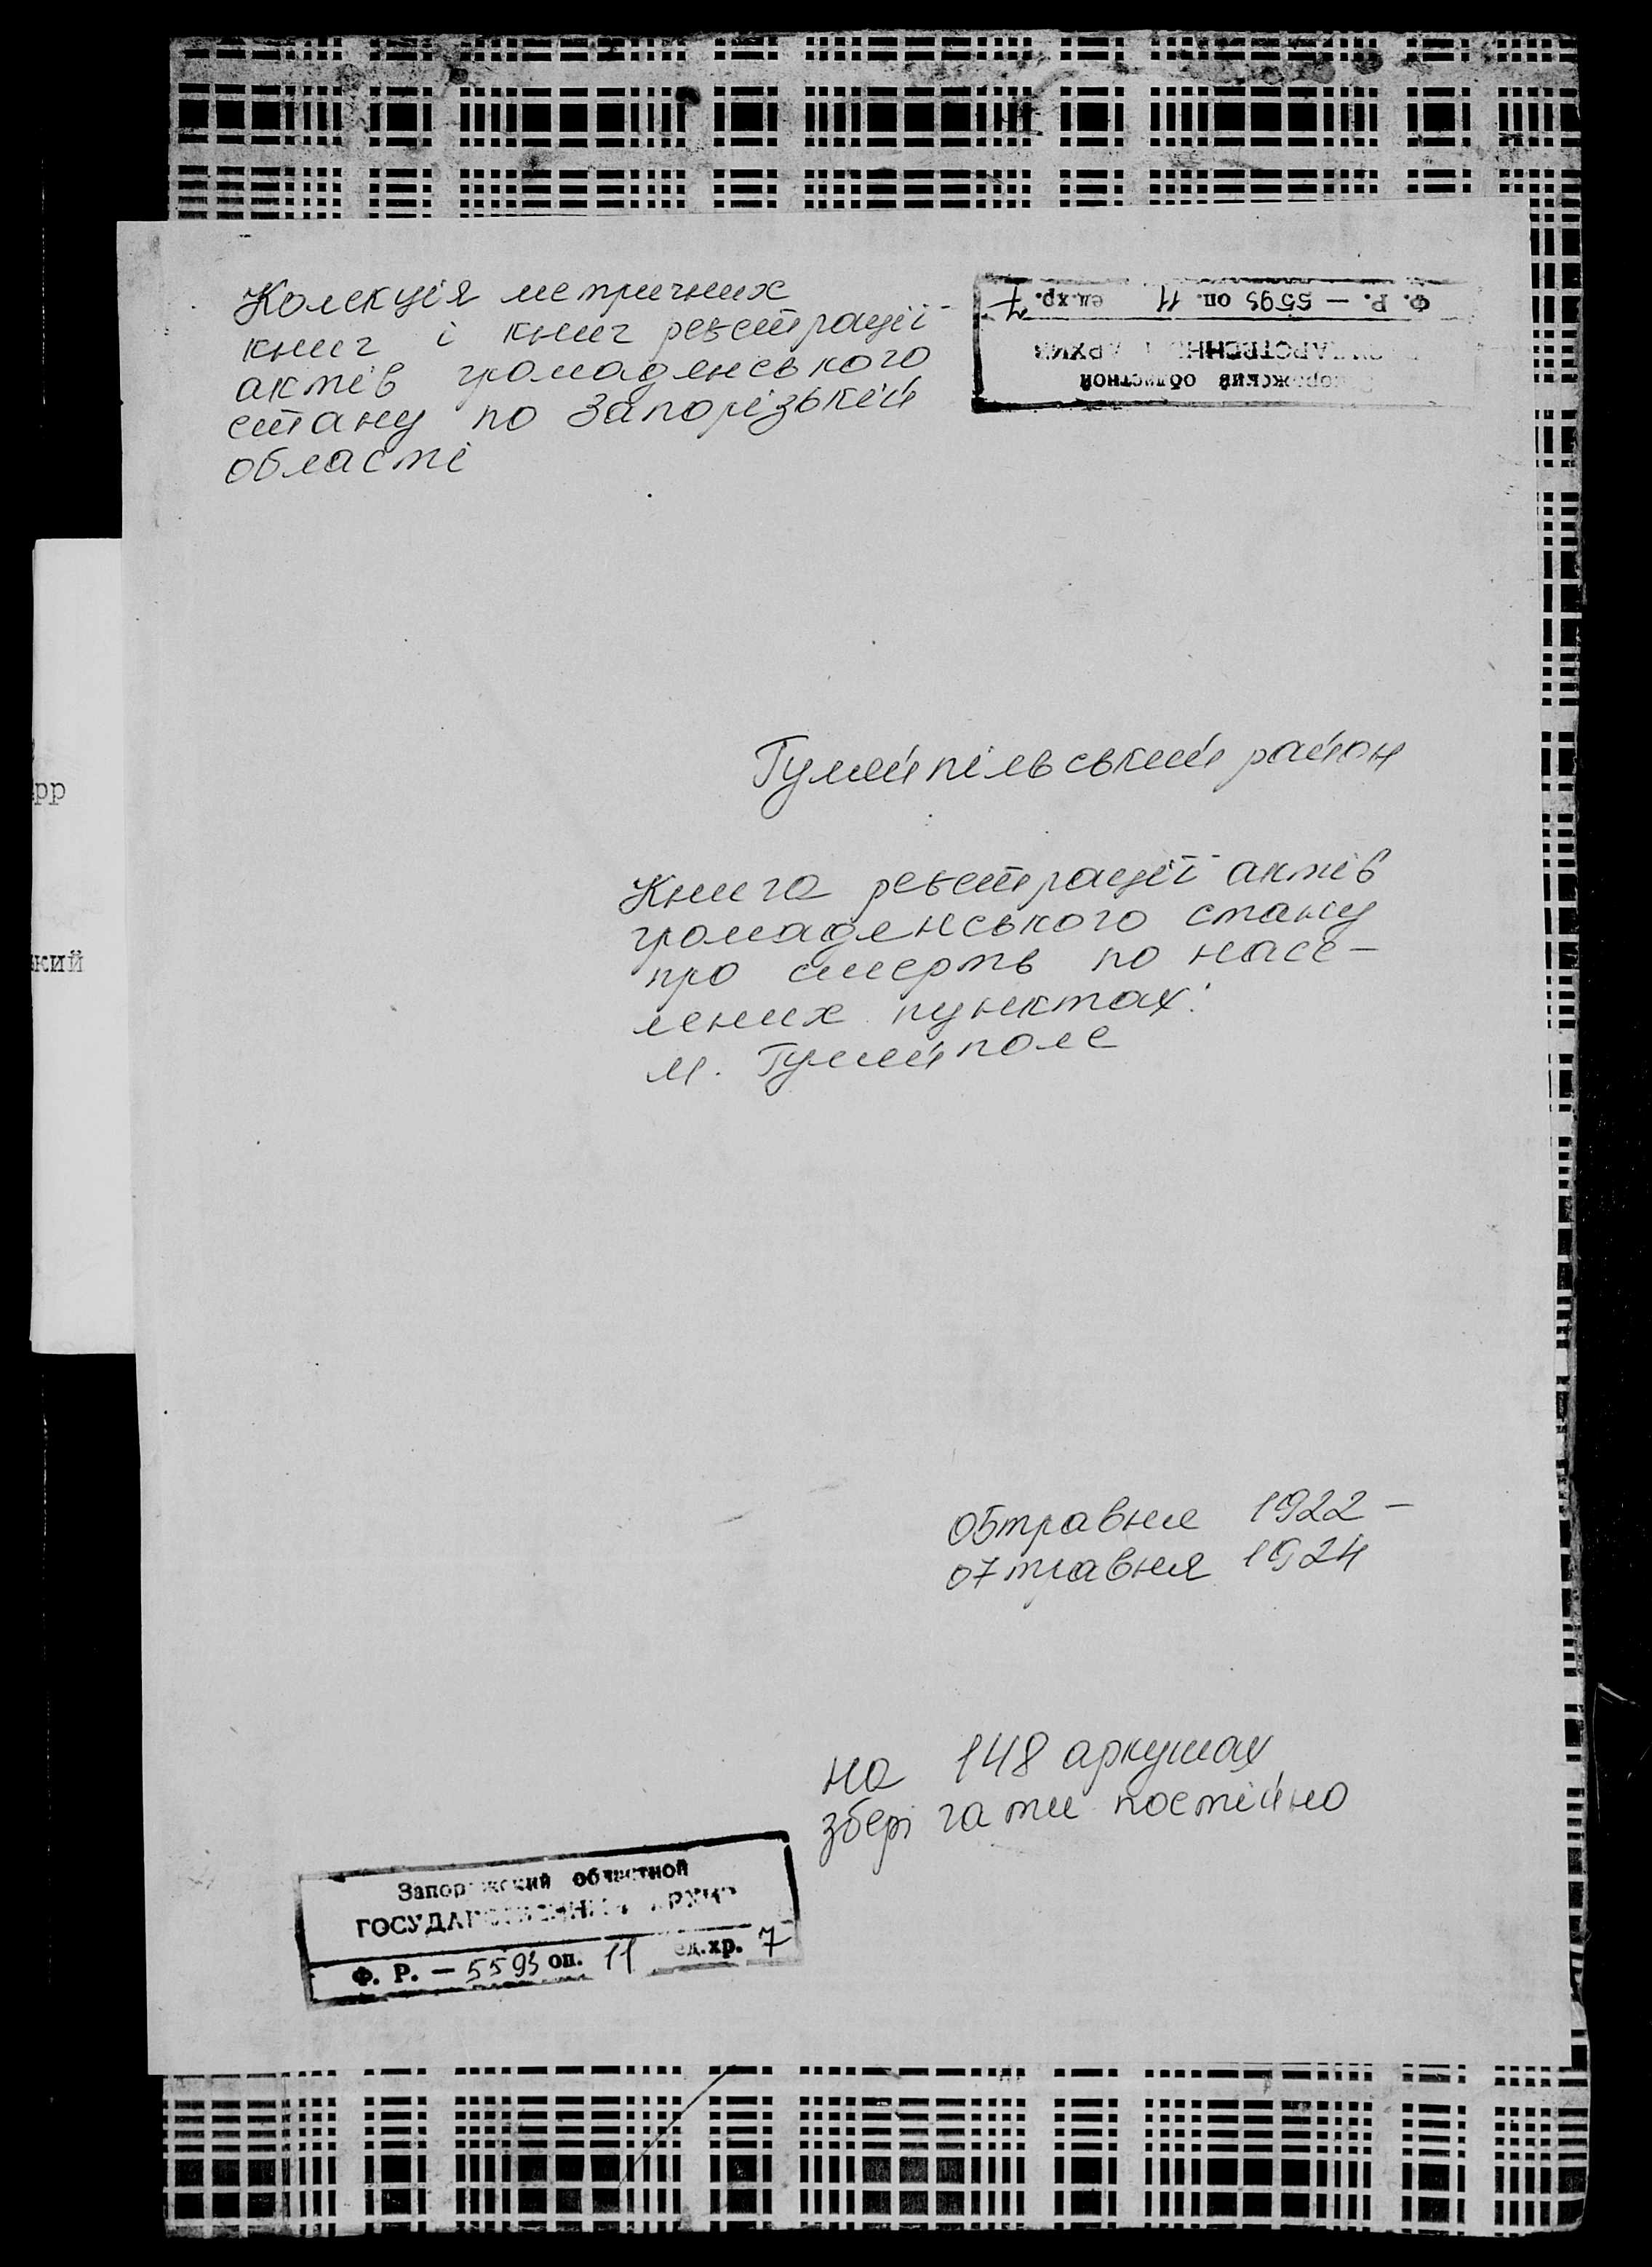 Колекція метричних
книг і книг реєстрації
актів громадянського
стану по Запорізькій
області
Ф. Р. — 5593 оп. 11 ед.хр. 7
областной
Гуляйпільський район
Книга реєстрації актів
громадянського стану
про смерть по насе-
лених пунктах:
м. Гуляйполе
рр
кий
05 травня 1922 —
07 травня 1924
на 148 аркушах
зберігати постійно
Запорожский областной
ГОСУДАРСТВЕННЫЙ АРХИВ
Ф. Р. — 5593 оп. 11 ед.хр. 7